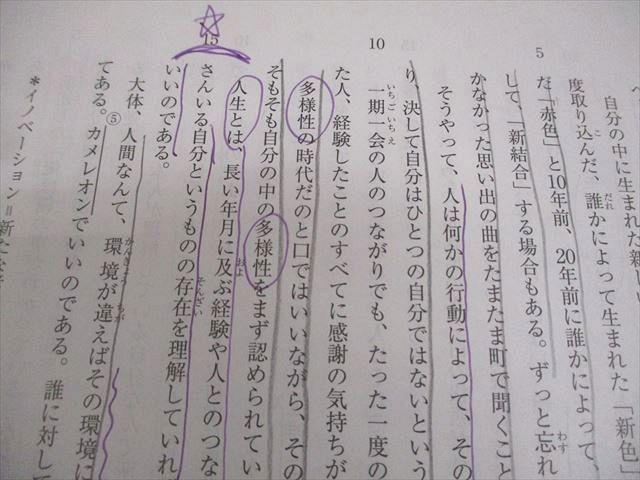 自分の中に生まれた新しい
度取り込んだ、誰かによって生まれた「新色」
だ「赤色」と10年前、20年前に誰かによって、
して、「新結合」する場合もある。ずっと忘れ
かなかった思い出の曲をたまたま町で聞くこと
そうやって、人は何かの行動によって、その
り、決して自分はひとつの自分ではないという
一期一会の人のつながりでも、たった一度の
た人、経験したことのすべてに感謝の気持ちが
多様性の時代だのと口ではいいながら、その
そもそも自分の中の多様性をまず認められてい
人生とは、長い年月に及ぶ経験や人とのつな
さんいる自分というものの存在を理解していれ
いいのである。
大体、人間なんて、環境が違えばその環境に
である。⑤カメレオンでいいのである。誰に対して
*イノベーション＝新たな
5
10
15